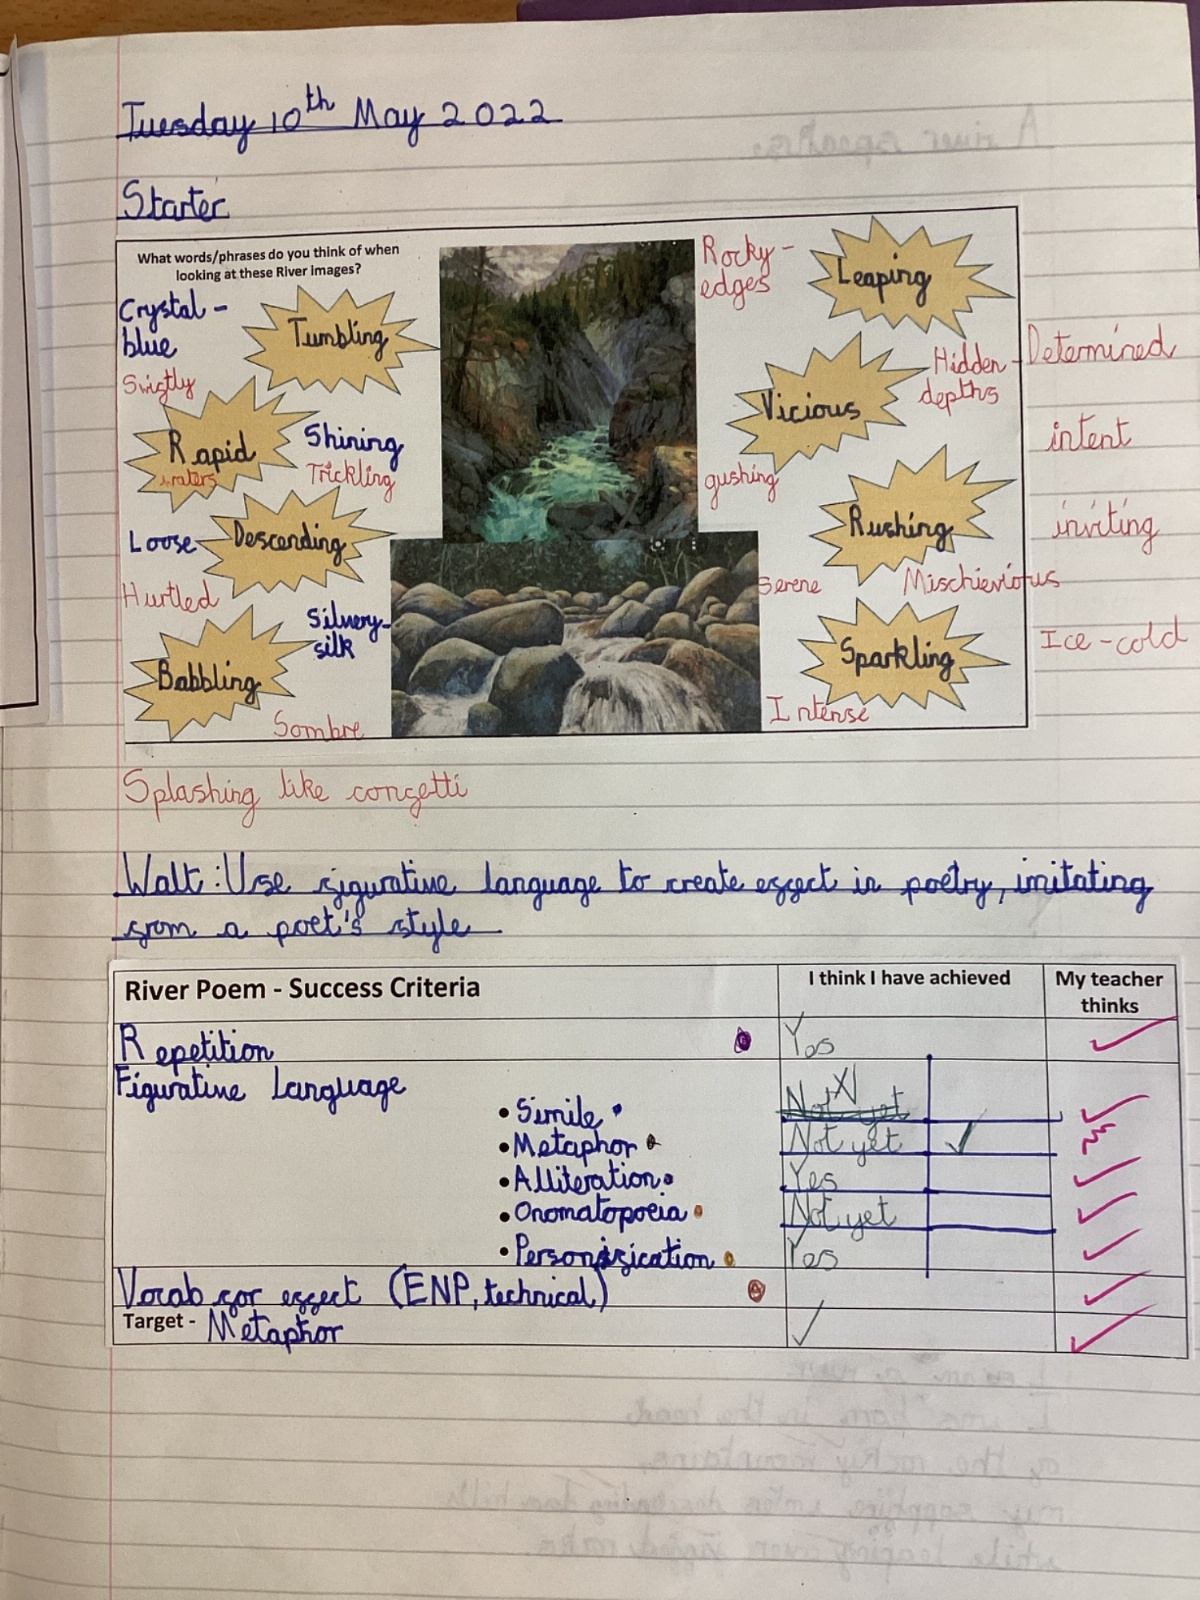 Tuesday 10th May 2022
Starter
What words/phrases do you think of when
looking at these River images?
Crystal-
blue
Tumbling
Swiftly
Rapid
waters
Shining
Trickling
Loose
Descending
Hurtled
Silvery-
silk
Babbling
Sombre
Rocky-
edges
Leaping
Hidden-
depths
Vicious
gushing
Rushing
Serene
Mischievious
Sparkling
Intense
Determined
intent
inviting
Ice-cold
Splashing like confetti
Walt: Use figurative language to create effect in poetry, imitating
from a poet's style
River Poem - Success Criteria
I think I have achieved
My teacher
thinks
Repetition
Yes
Figurative Language
• Simile
Not yet
• Metaphor
Not yet
• Alliteration
Yes
• Onomatopoeia
Not yet
• Personification
Yes
Vocab for effect (ENP, technical)
Target - Metaphor